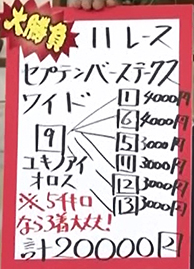 大勝負
11レース
セプテンバーステークス
ワイド
9
ユキノアイオロス
1 4000円
6 4000円
5 3000円
11 3000円
12 3000円
13 3000円
※5件口
なら3着大丈夫!
計20000 2